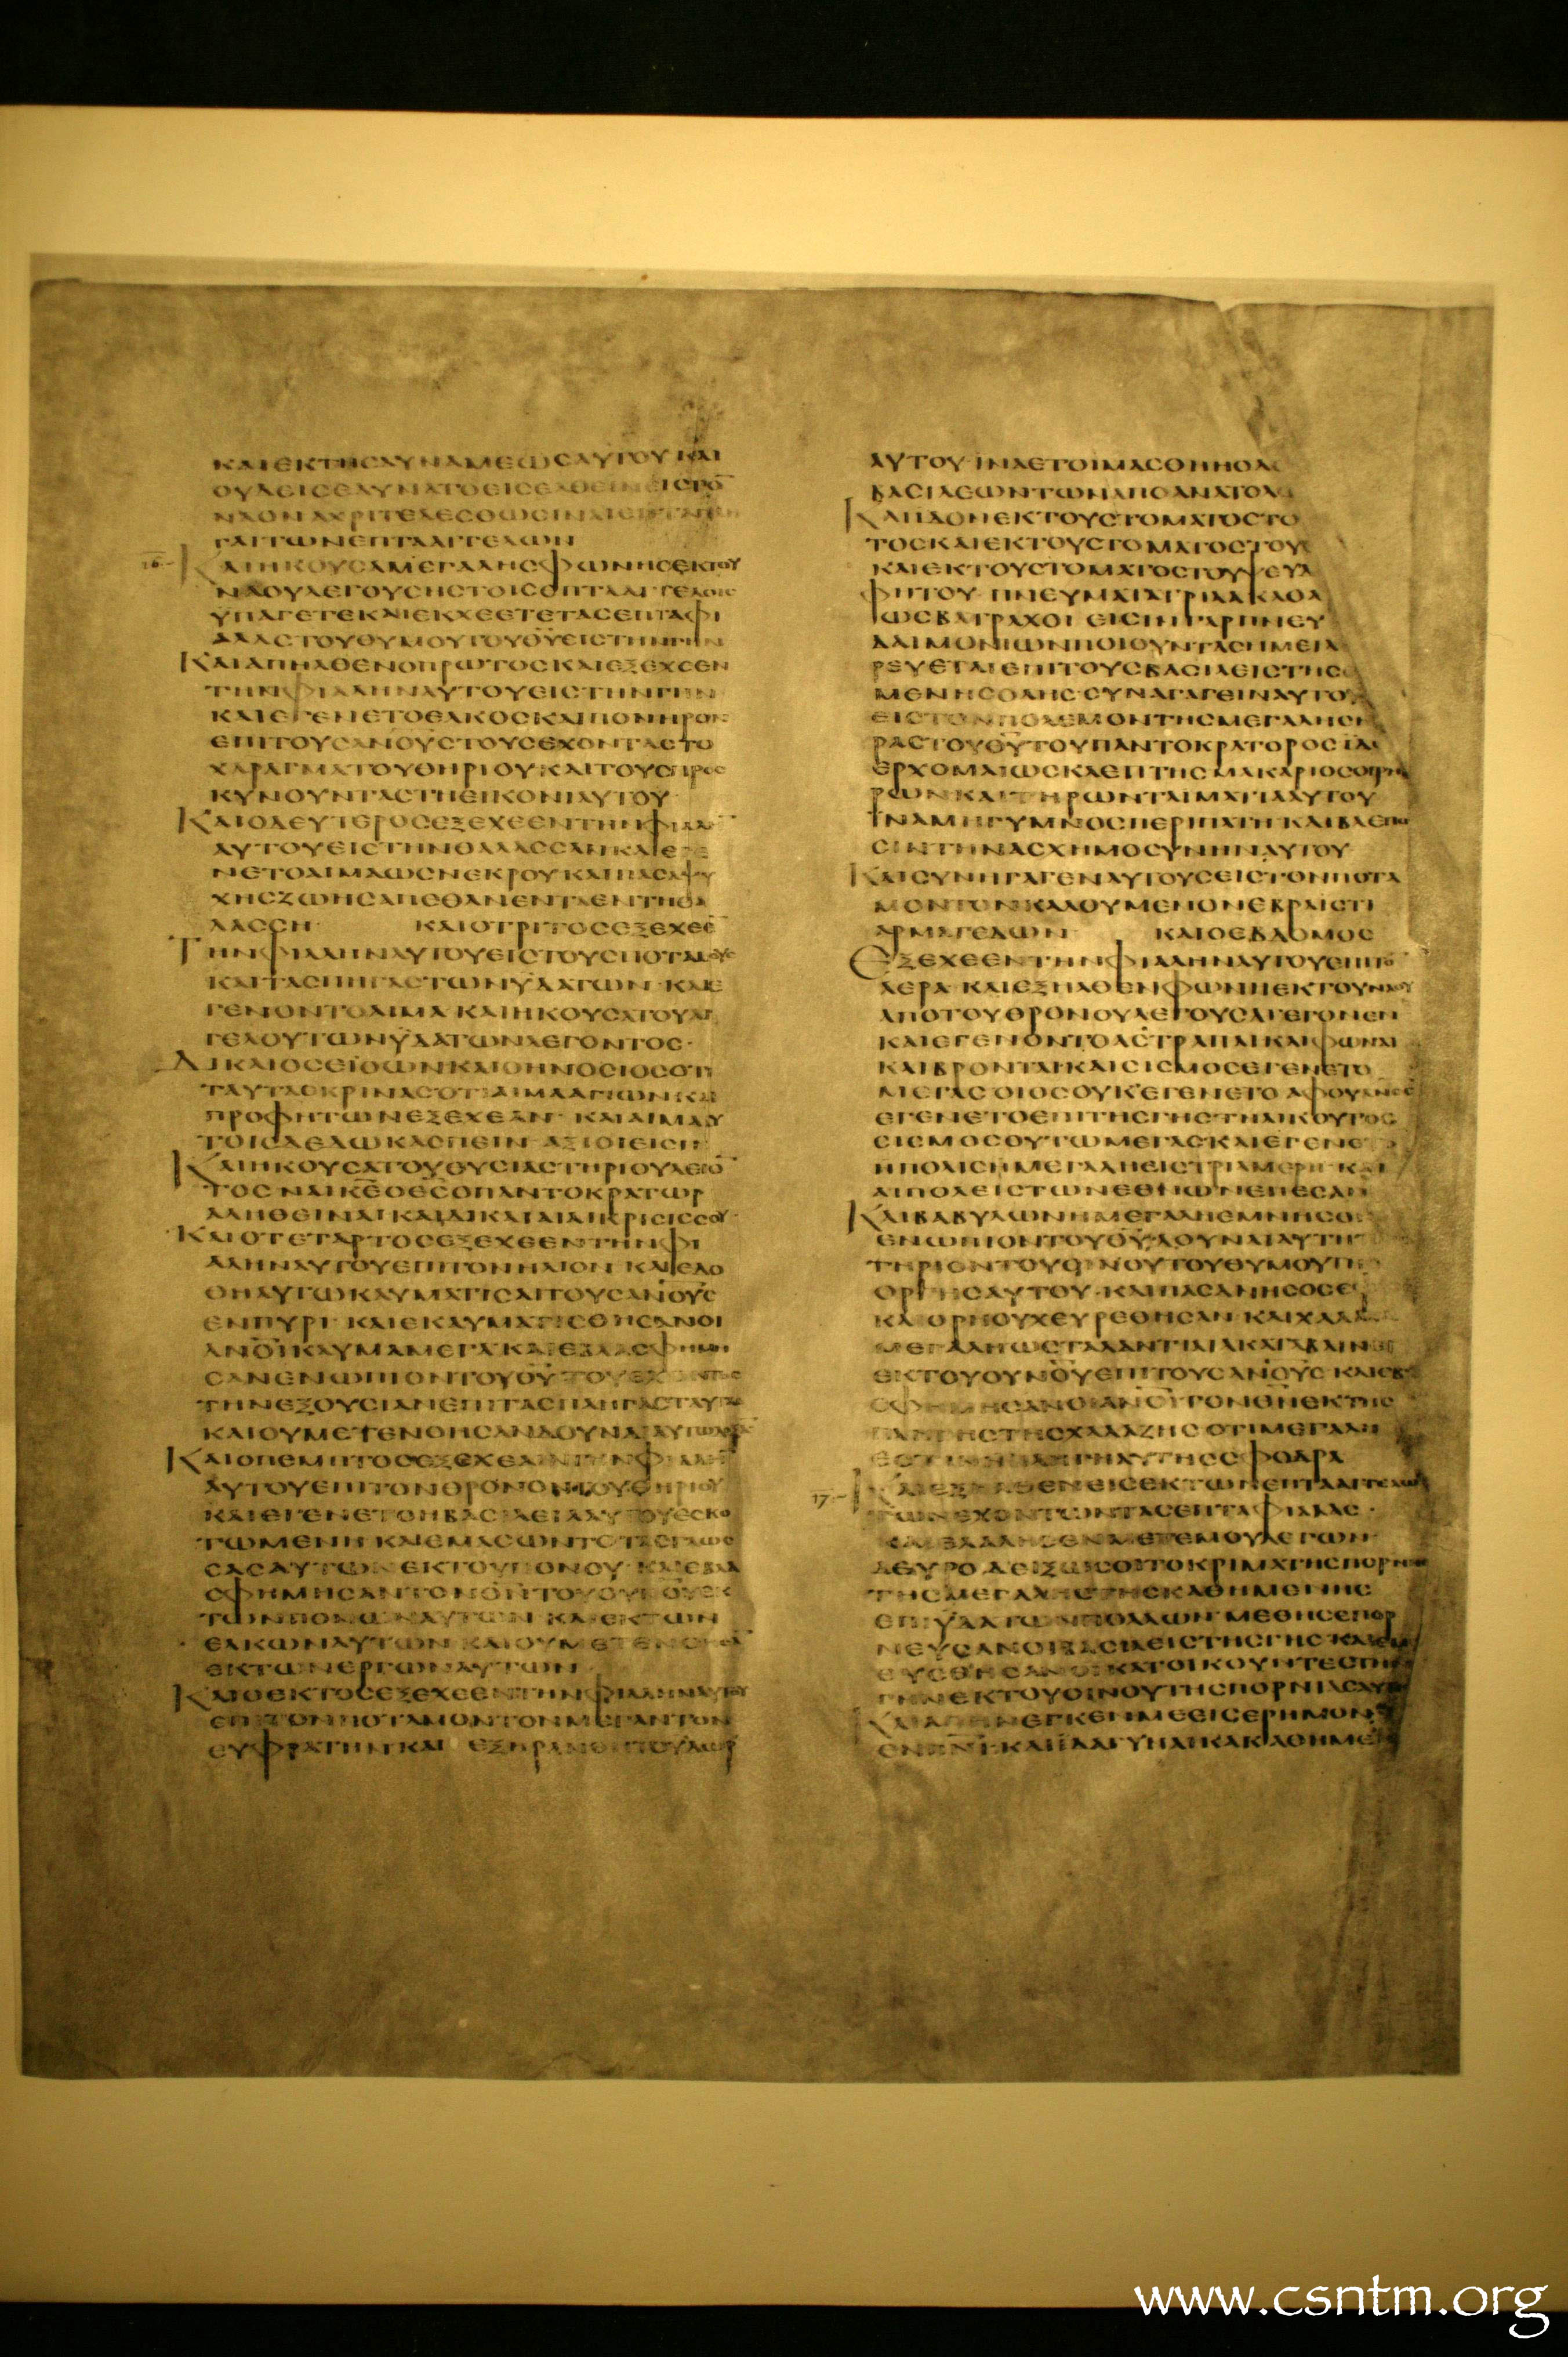 ΚΑΙΕΚΤΗΣΔΥΝΑΜΕΩΣΑΥΤΟΥ ΚΑΙ
ΟΥΔΕΙΣΕΔΥΝΑΤΟΕΙΣΕΛΘΕΙΝ
ΓΑΙΤΩΝΕΠΤΑΑΓΓΕΛΩΝ
16
ΚΑΙΗΚΟΥΣΑΜΕΓΑΛΗΣΦΩΝΗΣΕΚΤΟΥ
ΝΑΟΥΛΕΓΟΥΣΗΣΤΟΙΣΕΠΤΑΑΓΓΕΛΟΙΣ
ΥΠΑΓΕΤΕΚΑΙΕΚΧΕΕΤΕΤΑΣΕΠΤΑΦΙ
ΑΛΑΣΤΟΥΘΥΜΟΥΤΟΥΘΥΕΙΣΤΗΝΓΗΝ
ΚΑΙΑΠΗΛΘΕΝΟΠΡΩΤΟΣΚΑΙΕΞΕΧΕΕΝ
ΤΗΝΦΙΑΛΗΝΑΥΤΟΥΕΙΣΤΗΝΓΗΝ
ΚΑΙΕΓΕΝΕΤΟΕΛΚΟΣΚΑΙΠΟΝΗΡΟΝ
ΕΠΙΤΟΥΣΑΝΟΥΣΤΟΥΣΕΧΟΝΤΑΣΤΟ
ΧΑΡΑΓΜΑΤΟΥΘΗΡΙΟΥ ΚΑΙΤΟΥΣΠΡΟΣ
ΚΥΝΟΥΝΤΑΣΤΗΕΙΚΟΝΙΑΥΤΟΥ
ΚΑΙΟΔΕΥΤΕΡΟΣΕΞΕΧΕΕΝΤΗΝΦΙΑΛ
ΑΥΤΟΥΕΙΣΤΗΝΘΑΛΑΣΣΑΝΚΑΙΕΓΕ
ΝΕΤΟΑΙΜΑΩΣΝΕΚΡΟΥΚΑΙΠΑΣΑΨΥ
ΧΗΣΖΩΗΣΑΠΕΘΑΝΕΝΤΑΕΝΤΗΘΑ
ΛΑΣΣΗ ΚΑΙΟΤΡΙΤΟΣΕΞΕΧΕΕ
ΤΗΝΦΙΑΛΗΝΑΥΤΟΥΕΙΣΤΟΥΣΠΟΤΑΜΟΥΣ
ΚΑΙΤΑΣΠΗΓΑΣΤΩΝΥΔΑΤΩΝ ΚΑΙΕ
ΓΕΝΟΝΤΟΑΙΜΑ ΚΑΙΗΚΟΥΣΑΤΟΥΑΓ
ΓΕΛΟΥΤΩΝΥΔΑΤΩΝΛΕΓΟΝΤΟΣ
ΔΙΚΑΙΟΣΕΙΟΩΝΚΑΙΟΗΝΟΣΙΟΣΟΤΙ
ΤΑΥΤΑΕΚΡΙΝΑΣΟΤΙΑΙΜΑΑΓΙΩΝΚΑΙ
ΠΡΟΦΗΤΩΝΕΞΕΧΕΑΝ ΚΑΙΑΙΜΑΑΥ
ΤΟΙΣΔΕΔΩΚΑΣΠΕΙΝ ΑΞΙΟΙΕΙΣΙΝ
ΚΑΙΗΚΟΥΣΑΤΟΥΘΥΣΙΑΣΤΗΡΙΟΥΛΕΓΟ
ΤΟΣ ΝΑΙΚΕΟΘΣΟΠΑΝΤΟΚΡΑΤΩΡ
ΑΛΗΘΕΙΝΑΙΚΑΙΔΙΚΑΙΑΙΑΙΚΡΙΣΙΣΣΟΥ
ΚΑΙΟΤΕΤΑΡΤΟΣΕΞΕΧΕΕΝΤΗΝΦΙ
ΑΛΗΝΑΥΤΟΥΕΠΙΤΟΝΗΛΙΟΝ ΚΑΙΕΔΟ
ΘΗΑΥΤΩΚΑΥΜΑΤΙΣΑΙΤΟΥΣΑΝΟΥΣ
ΕΝΠΥΡΙ ΚΑΙΕΚΑΥΜΑΤΙΣΘΗΣΑΝΟΙ
ΑΝΟΙΚΑΥΜΑΜΕΓΑ ΚΑΙΕΒΛΑΣΦΗΜΗ
ΣΑΝΕΝΩΠΙΟΝΤΟΥΘΥ ΤΟΥΕΧΟΝΤΟΣ
ΤΗΝΕΞΟΥΣΙΑΝΕΠΙΤΑΣΠΛΗΓΑΣΤΑΥΤΑΣ
ΚΑΙΟΥΜΕΤΕΝΟΗΣΑΝΔΟΥΝΑΙ
ΚΑΙΟΠΕΜΠΤΟΣΕΞΕΧΕΕΝΤΗΝΦΙΑΛΗ
ΑΥΤΟΥΕΠΙΤΟΝΘΡΟΝΟΝΤΟΥΘΗΡΙΟΥ
ΚΑΙΕΓΕΝΕΤΟΗΒΑΣΙΛΕΙΑΑΥΤΟΥΕΣΚΟ
ΤΩΜΕΝΗ ΚΑΙΕΜΑΣΩΝΤΟΤΑΣΓΛΩΣ
ΣΑΣΑΥΤΩΝ ΕΚΤΟΥΠΟΝΟΥ ΚΑΙΕΒΛΑ
ΣΦΗΜΗΣΑΝΤΟΝΘΝΤΟΥΟΥΡΟΥΕΚ
ΤΩΝΠΟΝΩΝΑΥΤΩΝ ΚΑΙΕΚΤΩΝ
ΕΛΚΩΝΑΥΤΩΝ ΚΑΙΟΥΜΕΤΕΝΟΗΣΑ
ΕΚΤΩΝΕΡΓΩΝΑΥΤΩΝ
ΚΑΙΟΕΚΤΟΣΕΞΕΧΕΕΝΤΗΝΦΙΑΛΗΝΑΥΤΟΥ
ΕΠΙΤΟΝΠΟΤΑΜΟΝΤΟΝΜΕΓΑΝΤΟΝ
ΕΥΦΡΑΤΗΝ ΚΑΙ ΕΞΗΡΑΝΘΗΤΟΥΔΩΡ
ΑΥΤΟΥ ΙΝΑΕΤΟΙΜΑΣΘΗΗΟΔ
ΒΑΣΙΛΕΩΝΤΩΝΑΠΟΑΝΑΤΟΛ
ΤΟΣΚΑΙΕΚΤΟΥΣΤΟΜΑΤΟΣΤΟΥ
ΚΑΙΕΚΤΟΥΣΤΟΜΑΤΟΣΤΟΥΨΕΥΔ
ΦΗΤΟΥ ΠΝΕΥΜΑΤΑΤΡΙΑΑΚΑΘΑ
ΩΣΒΑΤΡΑΧΟΙ ΕΙΣΙΝΓΑΡΠΝΕΥ
ΔΑΙΜΟΝΙΩΝΠΟΙΟΥΝΤΑΣΗΜΕΙΑ
ΡΕΥΕΤΑΙΕΠΙΤΟΥΣΒΑΣΙΛΕΙΣΤΗΣ
ΜΕΝΗΣΟΛΗΣ ΣΥΝΑΓΑΓΕΙΝΑΥΤΟΥ
ΕΙΣΤΟΝΠΟΛΕΜΟΝΤΗΣΜΕΓΑΛΗΣΗ
ΡΑΣΤΟΥΘΥΤΟΥΠΑΝΤΟΚΡΑΤΟΡΟΣ ΙΔ
ΕΡΧΟΜΑΙΩΣΚΛΕΠΤΗΣ ΜΑΚΑΡΙΟΣΟΓΡΗ
ΡΩΝ ΚΑΙΤΗΡΩΝΤΑΙΜΑΤΙΑΑΥΤΟΥ
ΙΝΑΜΗΓΥΜΝΟΣΠΕΡΙΠΑΤΗ ΚΑΙΒΛΕΠΩ
ΣΙΝΤΗΝΑΣΧΗΜΟΣΥΝΗΝΑΥΤΟΥ
ΚΑΙΣΥΝΗΓΑΓΕΝΑΥΤΟΥΣΕΙΣΤΟΝΠΟΤΑ
ΜΟΝΤΟΝΚΑΛΟΥΜΕΝΟΝΕΒΡΑΙΣΤΙ
ΑΡΜΑΓΕΔΩΝ ΚΑΙΟΕΒΔΟΜΟΣ
ΕΞΕΧΕΕΝΤΗΝΦΙΑΛΗΝΑΥΤΟΥΕΠΙΤΟ
ΑΕΡΑ ΚΑΙΕΞΗΛΘΕΝΦΩΝΗΕΚΤΟΥΝΑΟΥ
ΑΠΟΤΟΥΘΡΟΝΟΥΛΕΓΟΥΣΑΓΕΓΟΝΕΝ
ΚΑΙΕΓΕΝΟΝΤΟΑΣΤΡΑΠΑΙΚΑΙΦΩΝΑΙ
ΚΑΙΒΡΟΝΤΑΙΚΑΙΣΙΣΜΟΣΕΓΕΝΕΤΟ
ΜΕΓΑΣ ΟΙΟΣΟΥΚΕΓΕΝΕΤΟ ΑΦΟΥΑΝΟΣ
ΕΓΕΝΕΤΟΕΠΙΤΗΣΓΗΣ ΤΗΛΙΚΟΥΤΟΣ
ΣΙΣΜΟΣΟΥΤΩΜΕΓΑΣ ΚΑΙΕΓΕΝΕ
ΗΠΟΛΙΣΗΜΕΓΑΛΗΕΙΣΤΡΙΑΜΕΡΗ ΚΑΙ
ΑΙΠΟΛΕΙΣΤΩΝΕΘΝΩΝΕΠΕΣΑΝ
ΚΑΙΒΑΒΥΛΩΝΗΜΕΓΑΛΗΕΜΝΗΣΘ
ΕΝΩΠΙΟΝΤΟΥΘΥ ΔΟΥΝΑΙΑΥΤΗ
ΤΗΡΙΟΝΤΟΥΟΙΝΟΥΤΟΥΘΥΜΟΥΤΗΣ
ΟΡΓΗΣΑΥΤΟΥ ΚΑΙΠΑΣΑΝΗΣΟΣΕ
ΚΑΙΟΡΗΟΥΧΕΥΡΕΘΗΣΑΝ ΚΑΙΧΑΛΑΖ
ΜΕΓΑΛΗΩΣΤΑΛΑΝΤΙΑΙΑΚΑΤΑΒΑΙΝΕΙ
ΕΚΤΟΥΟΥΝΟΥΕΠΙΤΟΥΣΑΝΟΥΣ ΚΑΙΕΒΛΑ
ΣΦΗΜΗΣΑΝΟΙΑΝΟΙΤΟΝΘΝΕΚΤΗΣ
ΠΛΗΓΗΣΤΗΣΧΑΛΑΖΗΣ ΟΤΙΜΕΓΑΛΗ
ΕΣΤΙΝΗΠΛΗΓΗΑΥΤΗΣΣΦΟΔΡΑ
17
ΚΑΙΕΞΗΛΘΕΝΕΙΣΕΚΤΩΝΕΠΤΑΑΓΓΕΛΩΝ
ΤΩΝΕΧΟΝΤΩΝΤΑΣΕΠΤΑΦΙΑΛΑΣ
ΚΑΙΕΛΑΛΗΣΕΝΜΕΤΕΜΟΥΛΕΓΩΝ
ΔΕΥΡΟ ΔΕΙΞΩΣΟΙΤΟΚΡΙΜΑΤΗΣΠΟΡΝΗΣ
ΤΗΣΜΕΓΑΛΗΣΤΗΣΚΑΘΗΜΕΝΗΣ
ΕΠΙΥΔΑΤΩΝΠΟΛΛΩΝ ΜΕΘΗΣΕΠΟΡ
ΝΕΥΣΑΝΟΙΒΑΣΙΛΕΙΣΤΗΣΓΗΣ ΚΑΙΕΜΕ
ΘΥΣΘΗΣΑΝΟΙΚΑΤΟΙΚΟΥΝΤΕΣΤΗΝ
ΓΗΝΕΚΤΟΥΟΙΝΟΥΤΗΣΠΟΡΝΙΑΣΑΥΤΗΣ
ΚΑΙΑΠΗΝΕΓΚΕΝΜΕΕΙΣΕΡΗΜΟΝ
ΕΝΠΝΙ ΚΑΙΙΔΑΓΥΝΑΙΚΑΚΑΘΗΜΕ
www.csntm.org